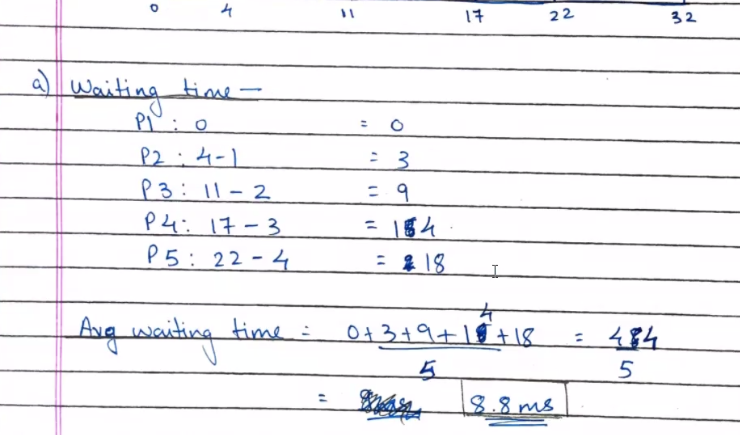 0 4 11 17 22 32
a) Waiting time —
P1 : 0 = 0
P2 : 4-1 = 3
P3 : 11-2 = 9
P4 : 17-3 = 14
P5 : 22-4 = 18
Avg waiting time = 0+3+9+14+18 = 44
5 5
= 8.8 ms